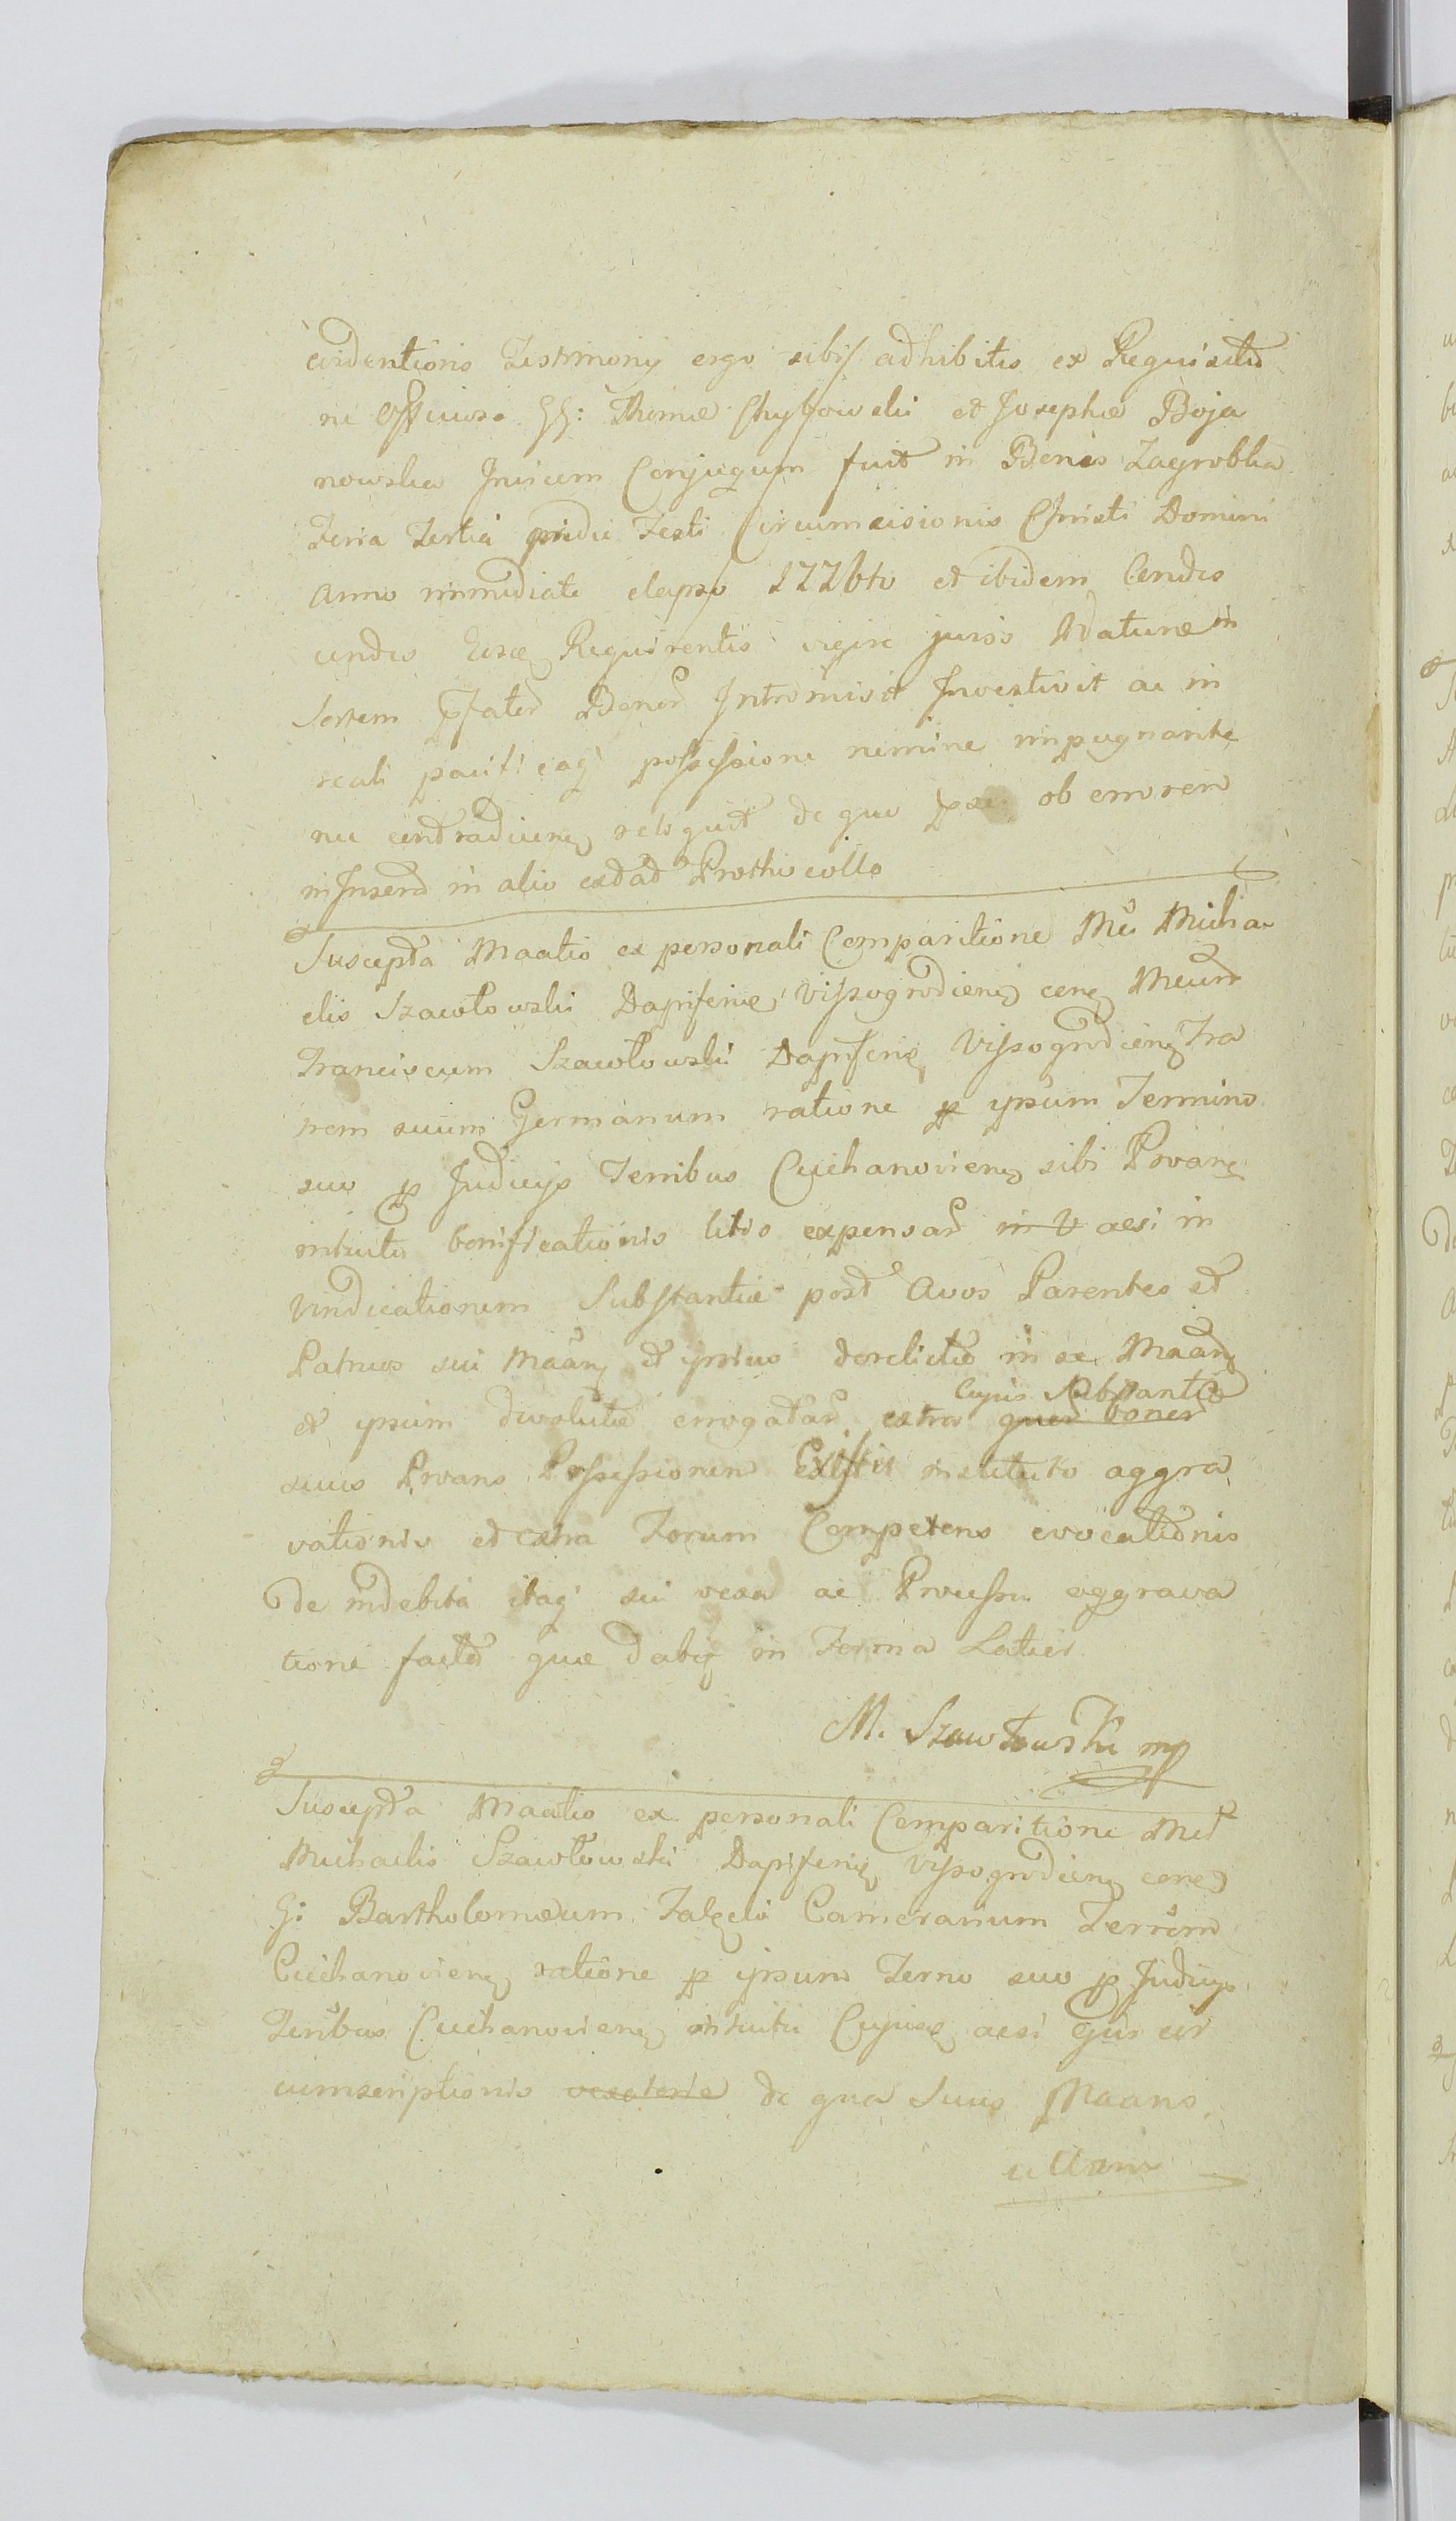 evidentioris Testimonij ergo sibi adhibitis ex Requisitio
ne Officiosa GG: Thomæ Chybowski et Josephæ Boja
nowska Invicem Conjugum fuit in Bonis Zagrobka
Feria Tertia pridie Festi Circumcisionis Christi Domini
Anno immediate elapso 1776to et ibidem
eundes Requirentes vigire juris Naturæ in
Sortem Bonor Intromisit Investivit ac in
reali pacificaq possessione nemine impugnante
nec contradicen reliquit de quo ob errorem
inInserd in alio Prothocollo
Suscepta Maatio ex personali Comparitione Mci Micha
elis Szawłowski Dapiferi Vissogrodien con Mcum
Franciscum Szawłowski Dapiferi Vissogrodien Fra
trem suum Germanum ratione p ipsum Termino
suo p Judicijs Terribus Ciechanovien sibi Pvoan
intuitu bonificationis litis expensar in V aesi in
vindicationem Substantiæ post Avos Parentes et
Patruos sui Maan et ipsius derelictæ in se Maan
Cujus Substantiæ
et ipsum devolutæ errogatar extra quor bonor
suus Pvoans Possessionem Existit instituto aggra
vationis et extra Forum Competens evocationis
De indebita itaq sui vexa ac Processu aggrava
tione facta quæ dabit in Forma Latiori
M. Szawłowski mp
Suscepta Maatio ex personali Comparitione Mci
Michaelis Szawłowski Dapiferi Vissogrodien con
G: Bartholomæum Falęcki Camerarium Terræ
Ciechanovien ratione p ipsum Terno suo p Judicijs
Terribus Ciechanovien intuitu Cujus aesi cir
cumscriptionis de qua Suus Maans